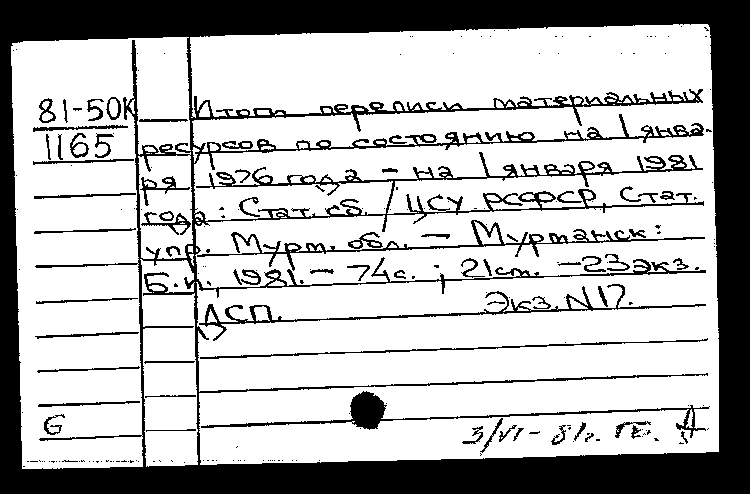 81-50К
1165
Итоги переписи материальных
ресурсов по состоянию на 1 янва-
ря 1976 года - на 1 января 1981
года: Стат. сб. / ЦСУ РСФСР, Стат.
упр. Мурм. обл. — Мурманск:
Б.и., 1981. — 74с.; 21см. — 23экз.
ДСП. Экз. N17.
G
3/VI - 81г.